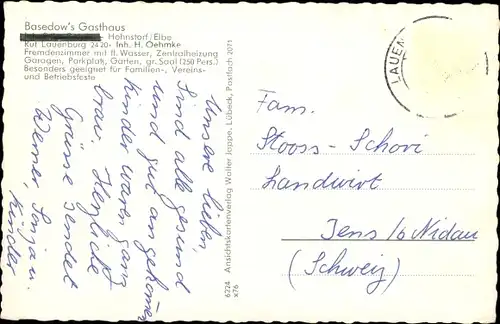 Basedow's Gasthaus
Hohnstorf/Elbe
Ruf Lauenburg 2420 - Inh. H. Oehmke
Fremdenzimmer mit fl. Wasser, Zentralheizung
Garagen, Parkplatz, Garten, gr. Saal (250 Pers.)
Besonders geeignet für Familien-, Vereins-
und Betriebsfeste
Unsere Lieben,
Sind alle gesund
und gut angekommen
Kinder waren ganz
brav. Herzliche
Grüsse sendet
Werner, Sonja u.
Kinder
6224 Ansichtskartenverlag Walter Jappe, Lübeck, Postfach 2071
x76
LAUEN
Fam.
Stooss-Schori
Landwirt
Jens b/Nidau
(Schweiz)